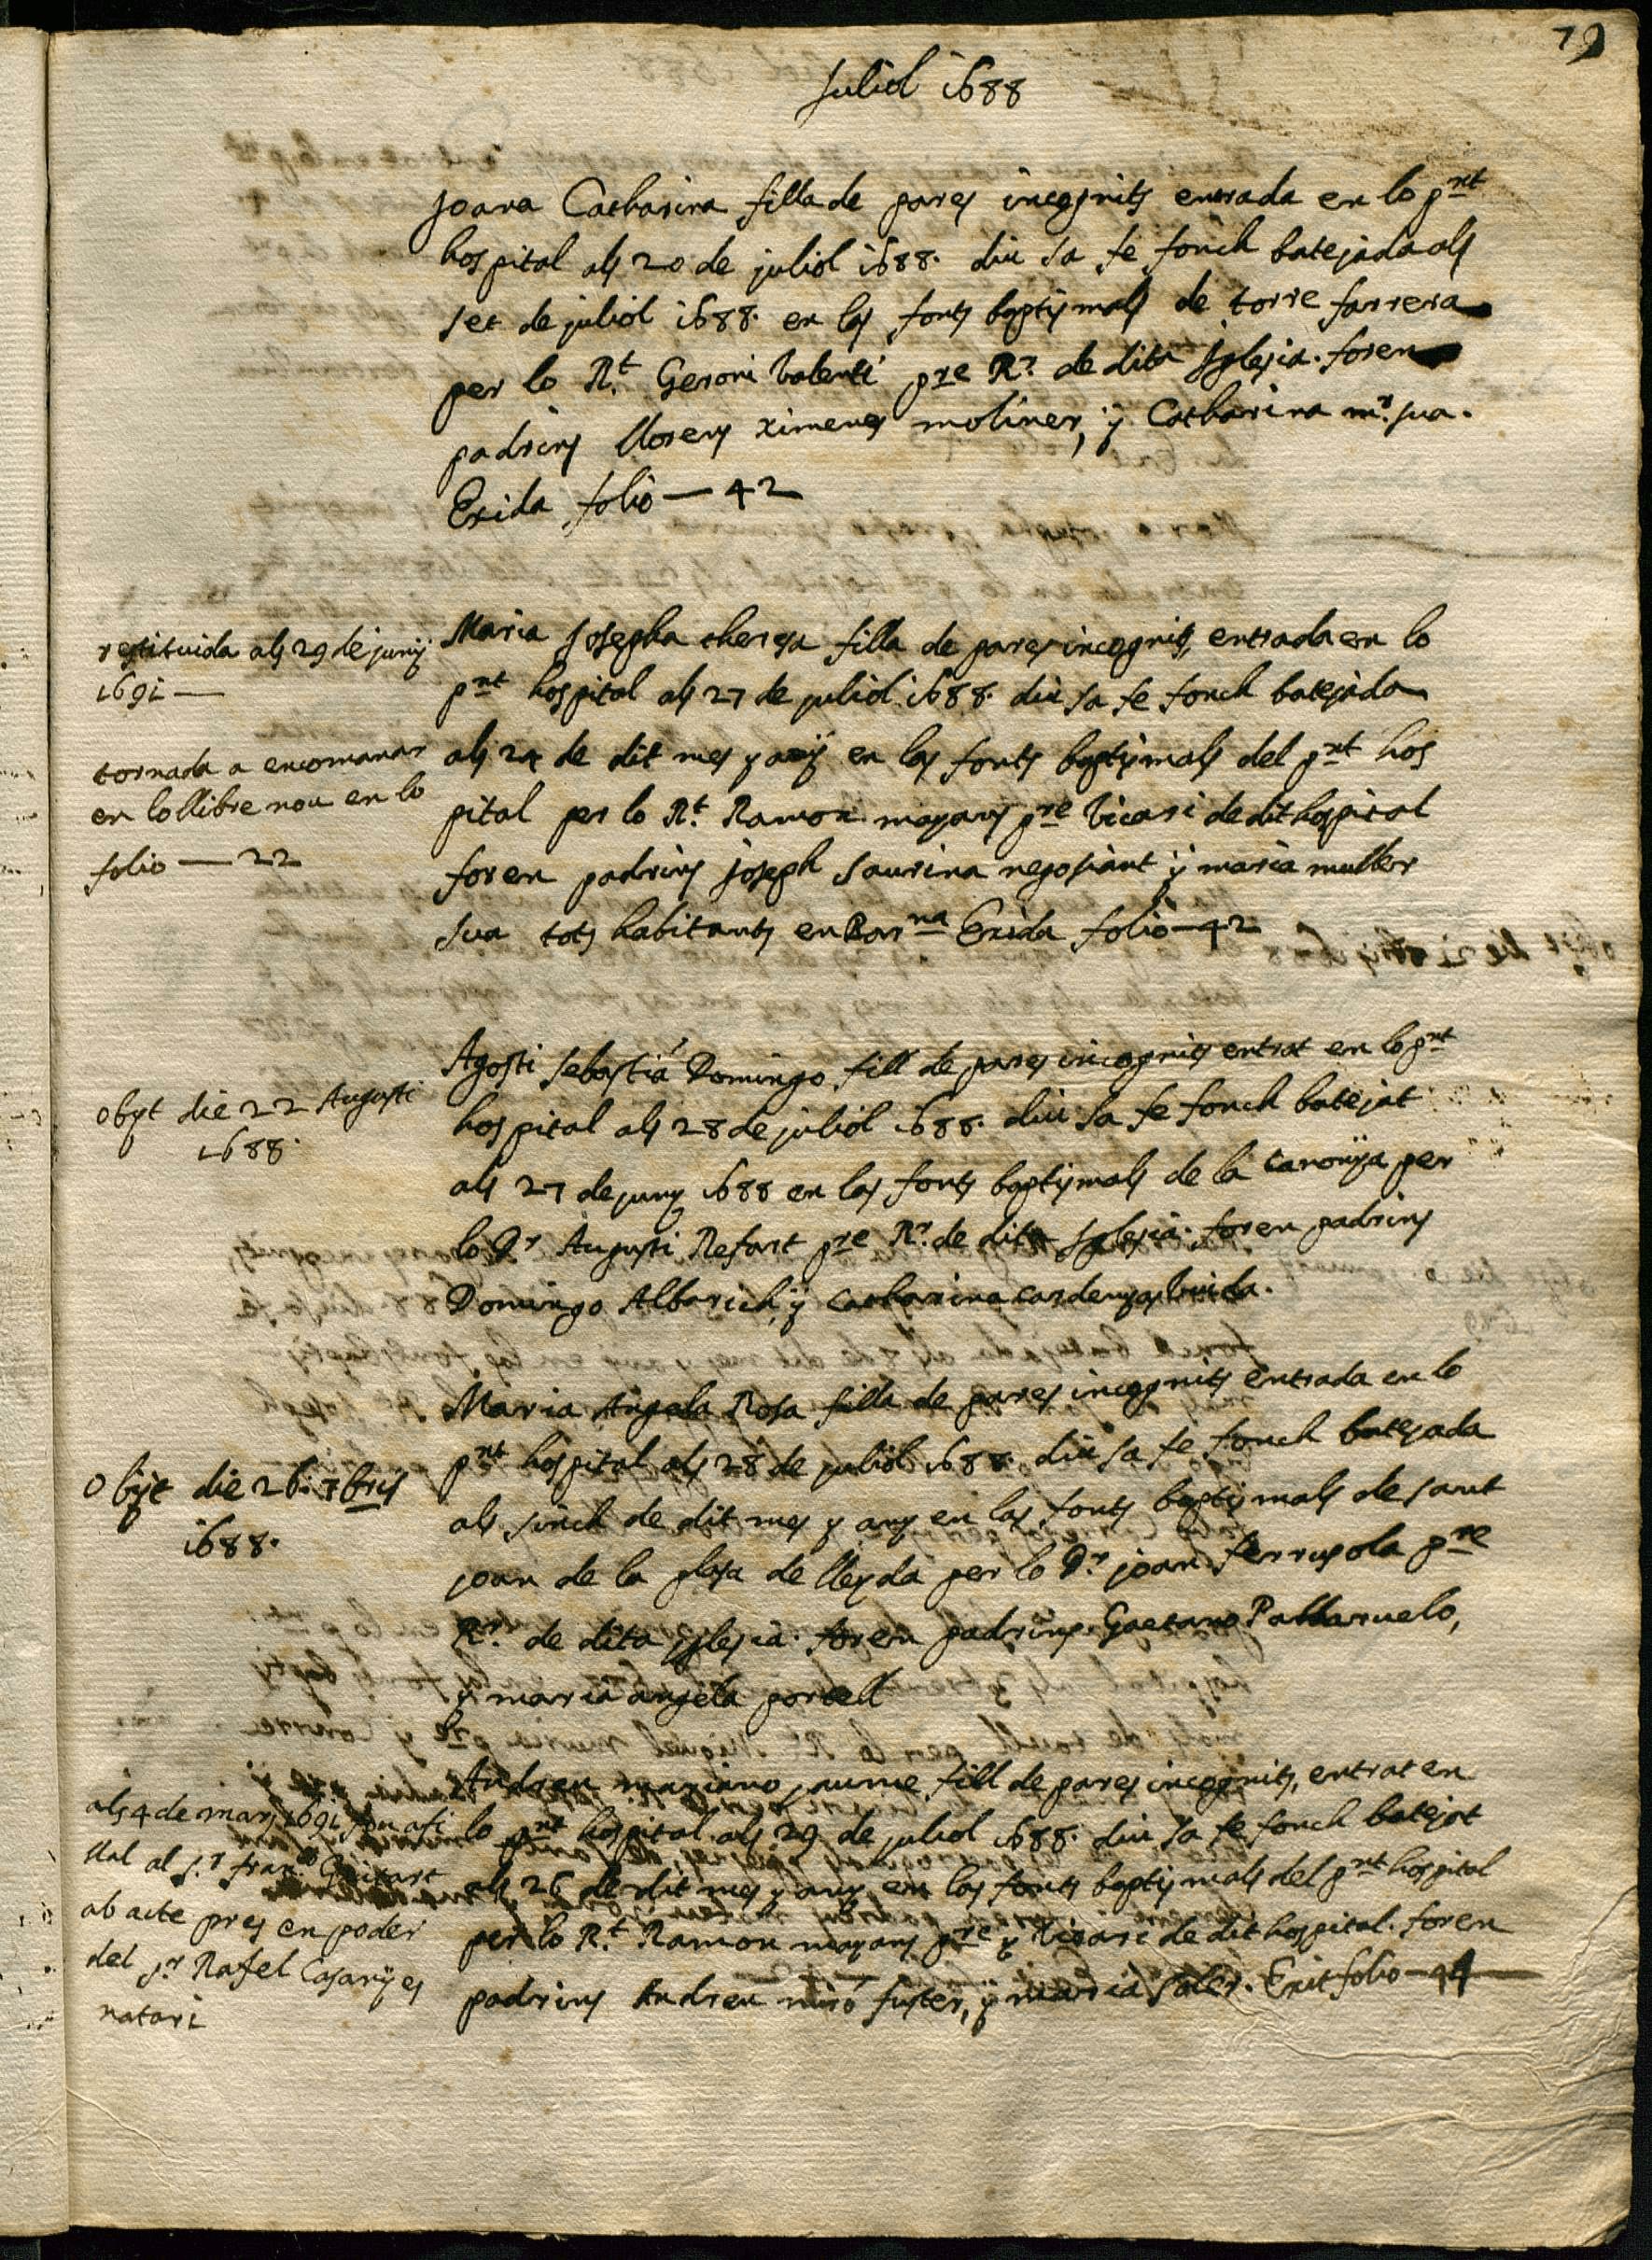 79
Juliol 1688
Joana Catharina filla de pares incognits entrada en lo pnt
hospital als 20 de juliol 1688. diu sa fe fonch batejada als
set de juliol 1688. en las fonts baptismals de torre farrera
per lo Rt. Geroni Valenti pre Rr. de dita Iglesia. foren
padrins llorens ximenes moliner, y Catharina mr. sua.
Exida folio — 42
restituida als 29 de juny
1691 —
tornada a encomanar
en lo llibre nou en lo
folio — 22
Maria Josepha theresa filla de pares incognits, entrada en lo
pnt hospital als 27 de juliol 1688. diu sa fe fonch batejada
als 24 de dit mes y any en las fonts baptismals del pnt hos
pital per lo Rt. Ramon mayans pre Vicari de dit hospital
foren padrins joseph saurina negosiant y maria muller
sua tots habitants en Barna Exida folio — 42
obyt die 22 Augusti
1688.
Agosti Sebastiá Domingo fill de pares incognits entrat en lo pnt
hospital als 28 de juliol 1688. diu sa fe fonch batejat
als 27 de juny 1688 en las fonts baptismals de la canonja per
lo Dr Augusti Refart pre Rr. de dita Iglesia. foren padrins
Domingo Albarich, y Catharina cardenyas viuda.
Obyt die 26. 7bris
1688.
Maria Angela Rosa filla de pares incognits entrada en lo
pnt hospital als 28 de juliol 1688. diu sa fe fonch batejada
als sinch de dit mes y any en las fonts baptismals de sant
joan de la plasa de lleyda per lo Dr joan ferrusola pre
Rr. de dita iglesia. foren padrins Gaetano Pallaruelo,
y maria angela porcell
als 4 de mars 1691 fou afi
llat al sr. franco Guitart
ab acte pres en poder
del sr Rafel Casanyes
notari
Andreu mariano jaume fill de pares incognits, entrat en
lo pnt hospital als 29 de juliol 1688. diu sa fe fonch batejat
als 26 de dit mes y any en las fonts baptismals del pnt hospital
per lo Rt. Ramon mayans pre y Vicari de dit hospital. foren
padrins Andreu miró fuster, y maria soler. Exit folio — 44